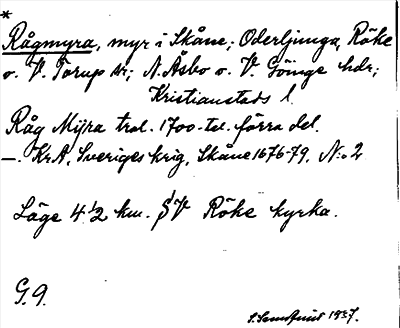 *
Rågmyra, myr i Skåne; Oderljunga, Röke
o. V. Torup sr; N. Åsbo o. V. Göinge hdr;
Kristianstads l.
Råg Mÿra trol. 1700-tal. förra del.
—. KrA, Sveriges krig, Skåne 1676-79. N:o 2
Läge 4 1/2 km. SV Röke kyrka.
G. 9.
1937.